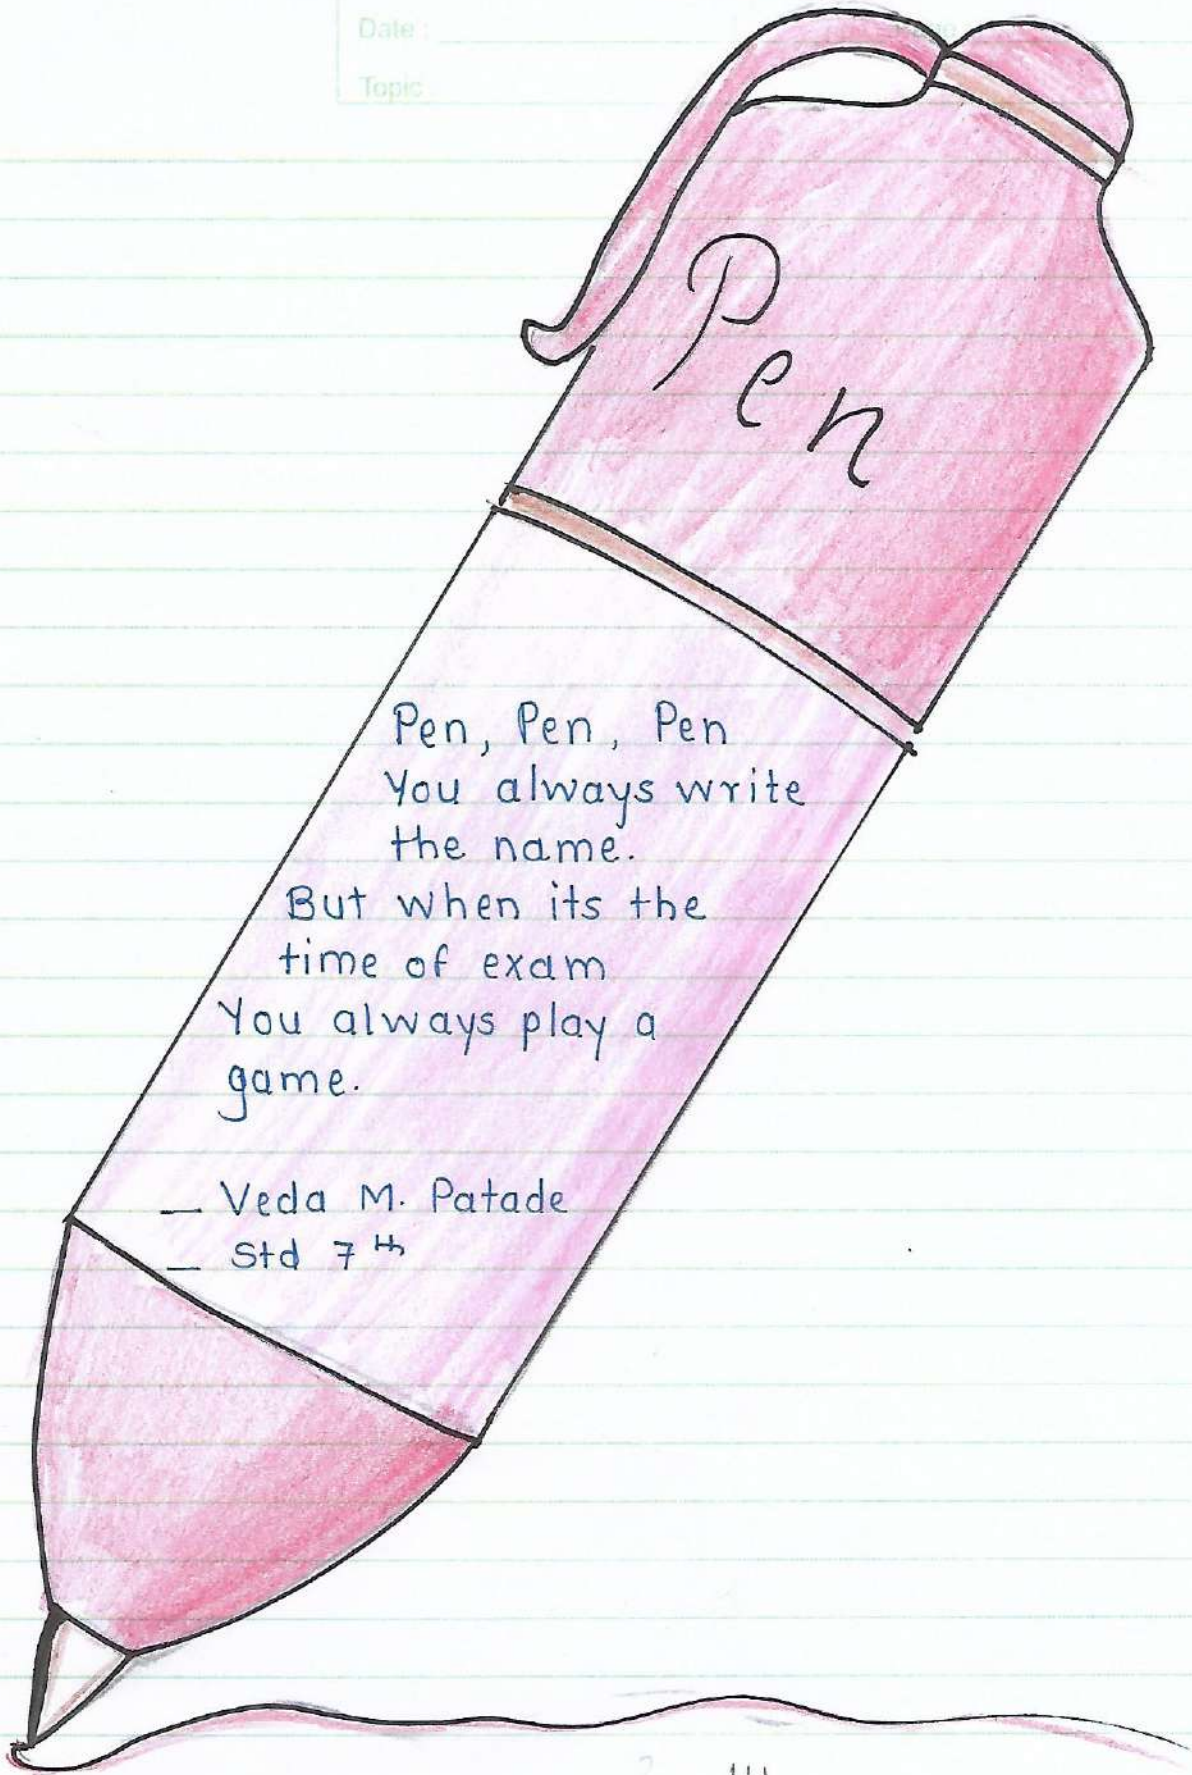 Date :
Topic
Pen
Pen, Pen, Pen
You always write
the name.
But when its the
time of exam
You always play a
game.
— Veda M. Patade
— Std 7th